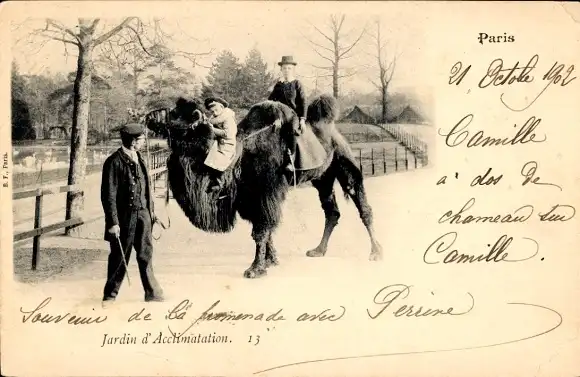 Paris
21 Octobre 1902
Camille
a' dos de
chameau sur
Camille.
B. F., Paris.
Souvenir de la promenade avec Perrine
Jardin d'Acclimatation. 13